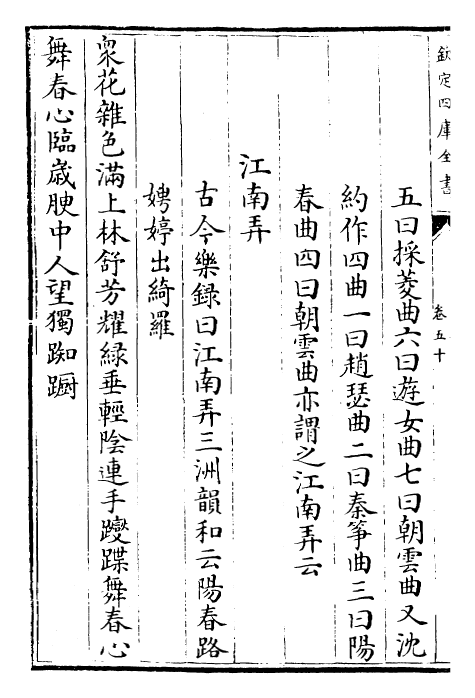 欽定四庫全書
卷五十
五曰採菱曲六曰遊女曲七曰朝雲曲又沈
約作四曲一曰趙瑟曲二曰秦筝曲三曰陽
春曲四曰朝雲曲亦謂之江南弄云
江南弄
古今樂錄曰江南弄三洲韻和云陽春路
娉婷出綺羅
衆花雜色滿上林舒芳耀綠垂輕陰連手躞蹀舞春心
舞春心臨歳腴中人望獨踟蹰